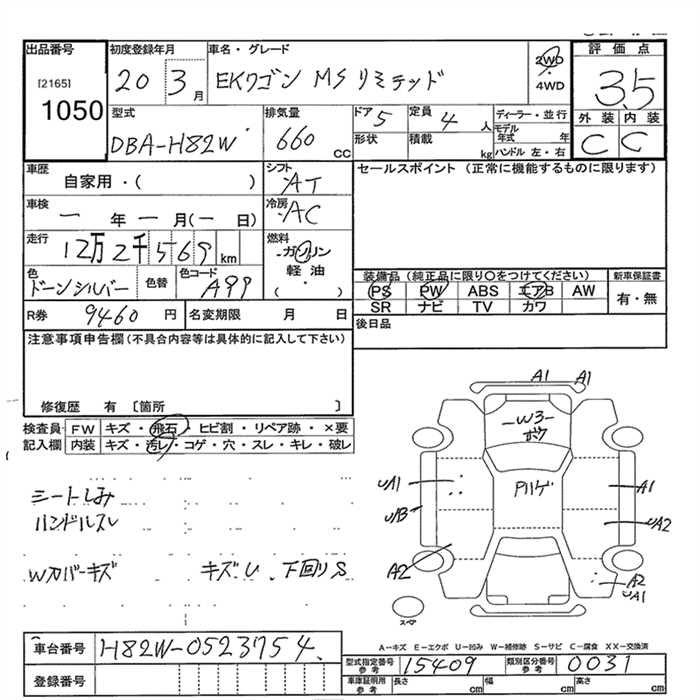 出品番号
[2165]
1050
初度登録年月
20 3月
車名・グレード
EKワゴン MSリミテッド
2WD
4WD
評価点
3.5
外装 内装
C C
型式
DBA-H82W
排気量
660
CC
ドア 5
形状
定員 4 人
積載 kg
ディーラー・並行
モデル年式 年
ハンドル 左・右
車歴
自家用・( )
シフト
AT
セールスポイント (正常に機能するものに限ります)
車検
一 年 一 月(一 日)
冷房
AC
走行
12万2千569 km
燃料
ガソリン
軽油
( ・ )
色
ドーンシルバー
色替
色コード
A99
装備品(純正品に限り○をつけてください)
PS PW ABS エアB AW
SR ナビ TV カワ
新車保証書
有・無
R券 9460 円
名変期限 月 日
後日品
注意事項申告欄(不具合内容等は具体的に記入して下さい)
修復歴 有 〔箇所 〕
検査員記入欄
FW キズ・飛石・ヒビ割・リペア跡・×要
内装 キズ・汚レ・コゲ・穴・スレ・キレ・破レ
シートしみ
ハンドルスレ
Wカバーキズ キズU 下回りS
A1 A1
W3
ボケ
Pハゲ
UA1
UA3
A2
A1
UA2
A2
UA1
スペア
A-キズ E-エクボ U-凹み W-補修跡 S-サビ C-腐食 XX-交換済
車台番号 H82W-0523754
登録番号
型式指定番号 参考 15409
類別区分番号 参考 0031
車庫証明用 参考 長さ cm 幅 cm 高さ cm